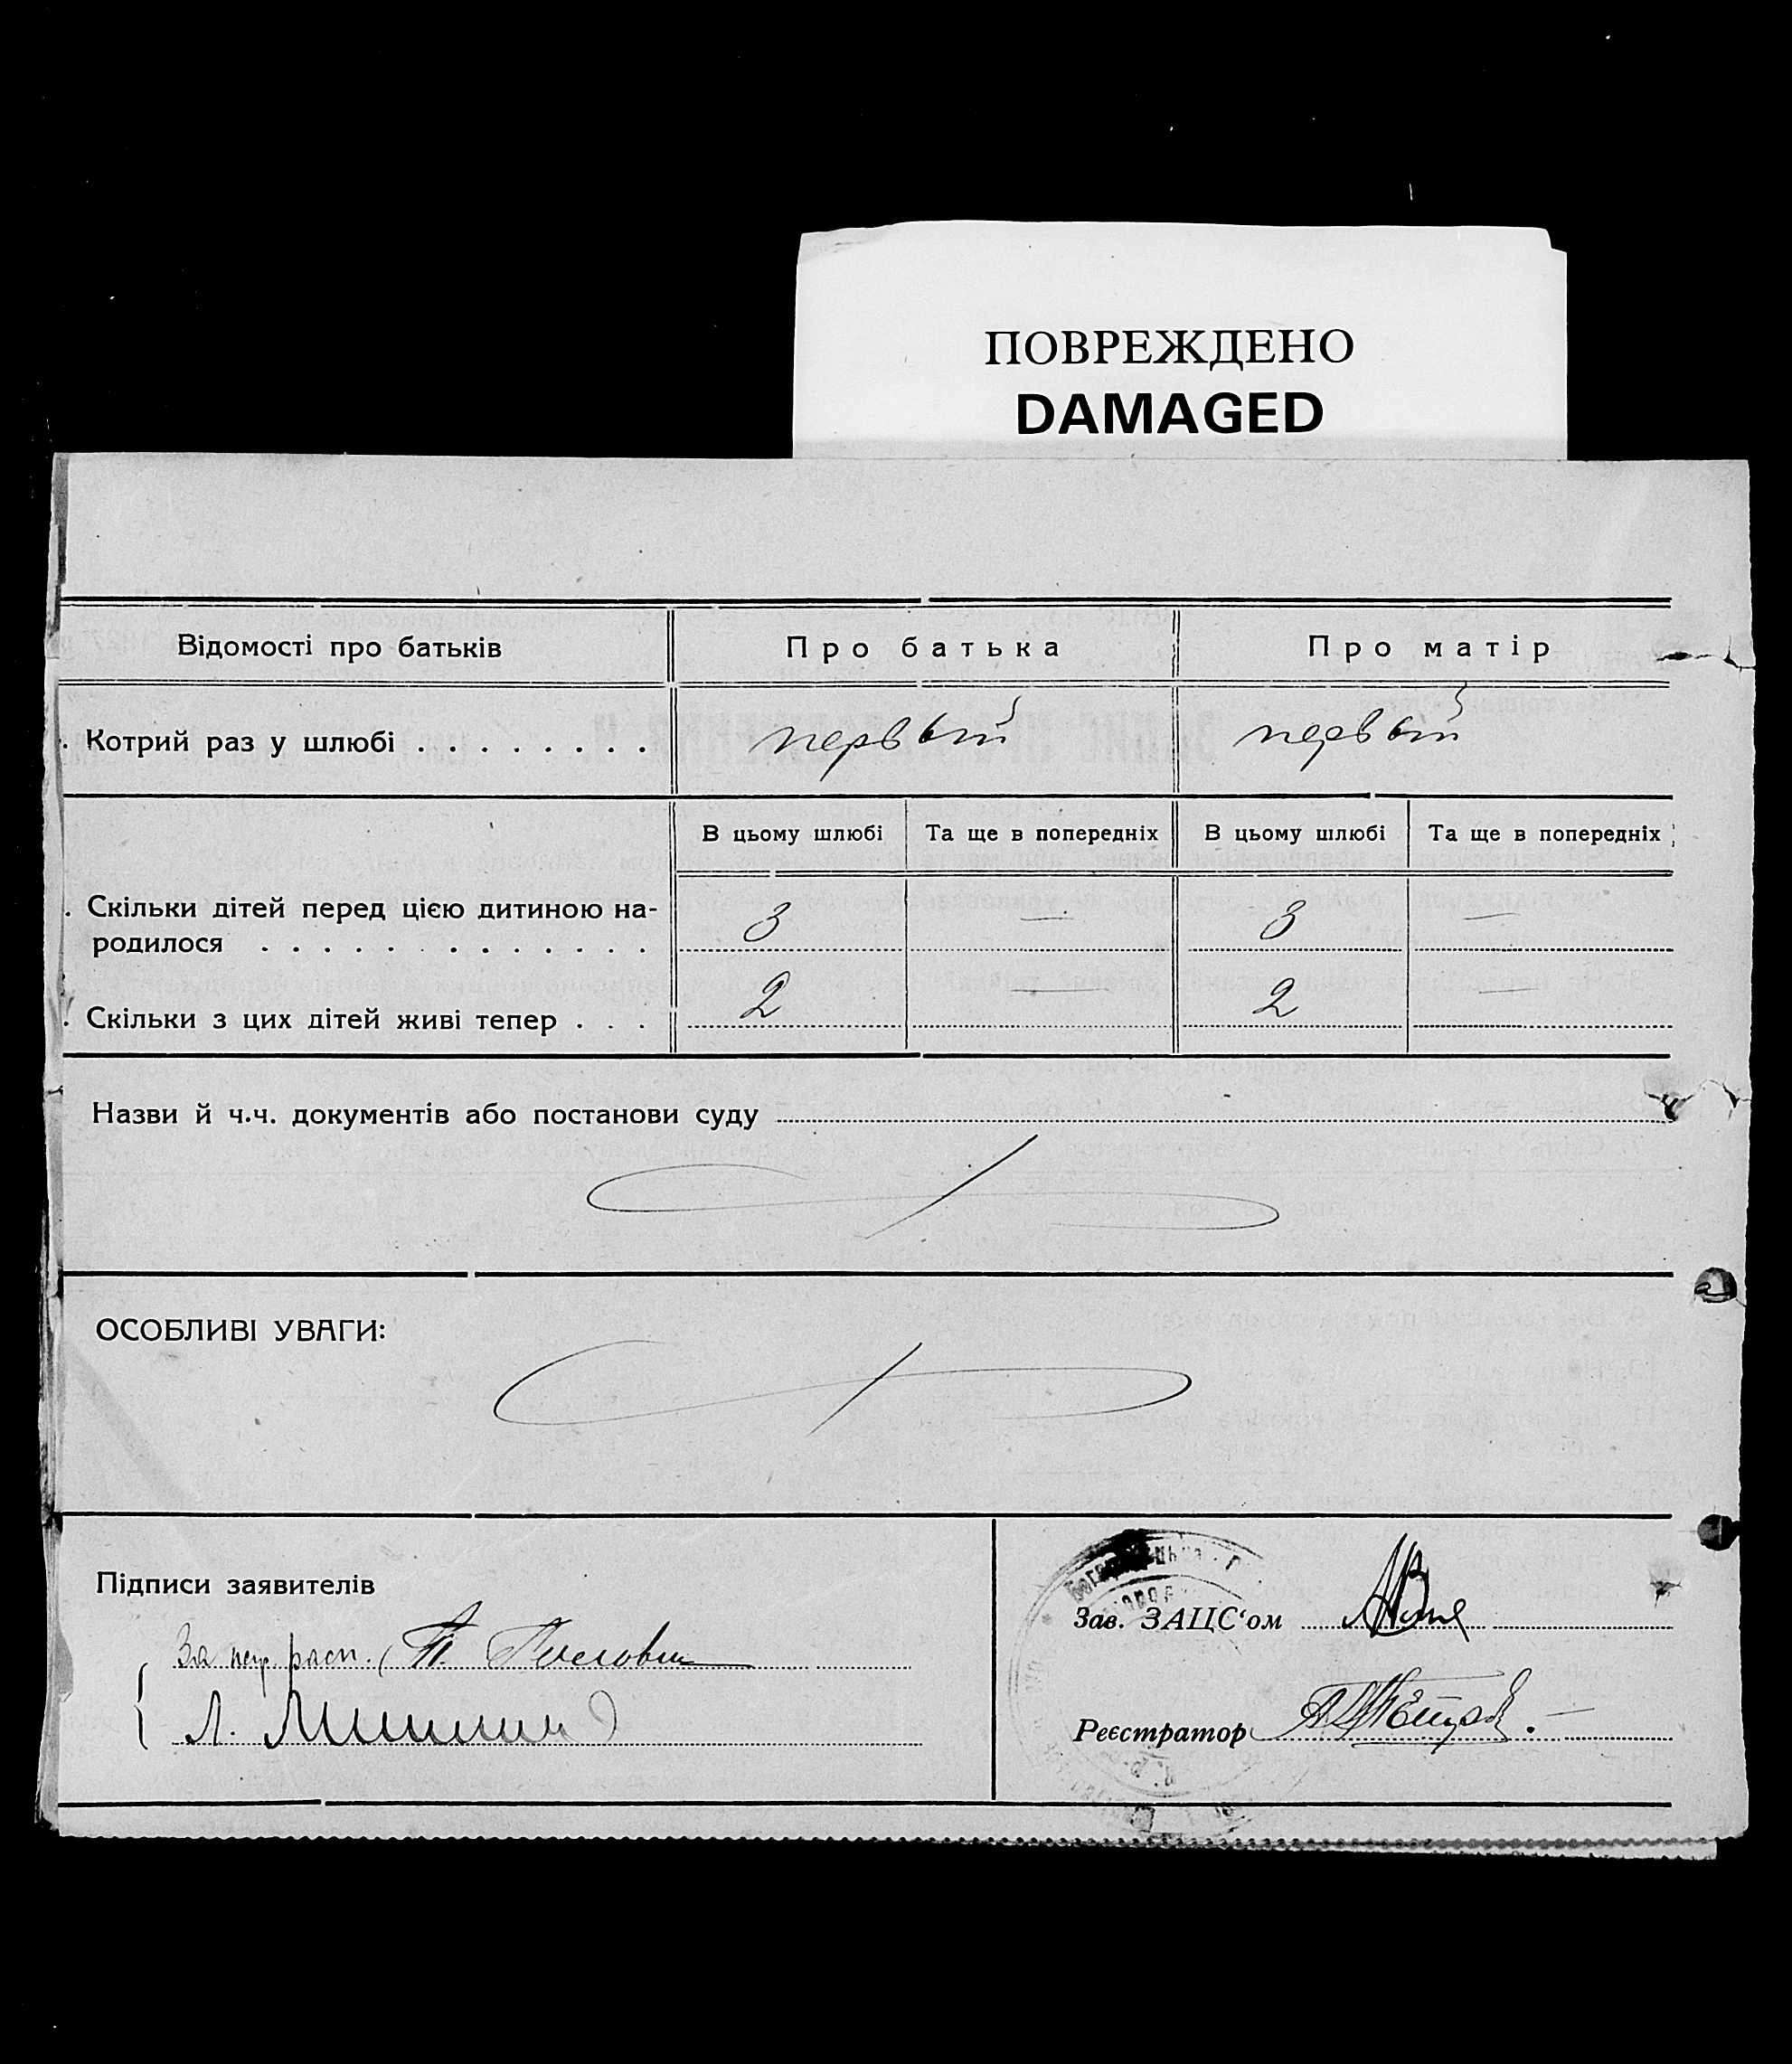 ПОВРЕЖДЕНО
DAMAGED
Відомості про батьків
Про батька
Про матір
Котрий раз у шлюбі . . . . . . . .
первый
первый
В цьому шлюбі
Та ще в попередніх
В цьому шлюбі
Та ще в попередніх
Скільки дітей перед цією дитиною на-
родилося . . . . . . . . . . . . .
3
—
3
—
Скільки з цих дітей живі тепер . . .
2
—
2
—
Назви й ч.ч. документів або постанови суду
ОСОБЛИВІ УВАГИ:
Підписи заявителів
За расп.
Л.
Зав. ЗАЦС‘ом
Реєстратор